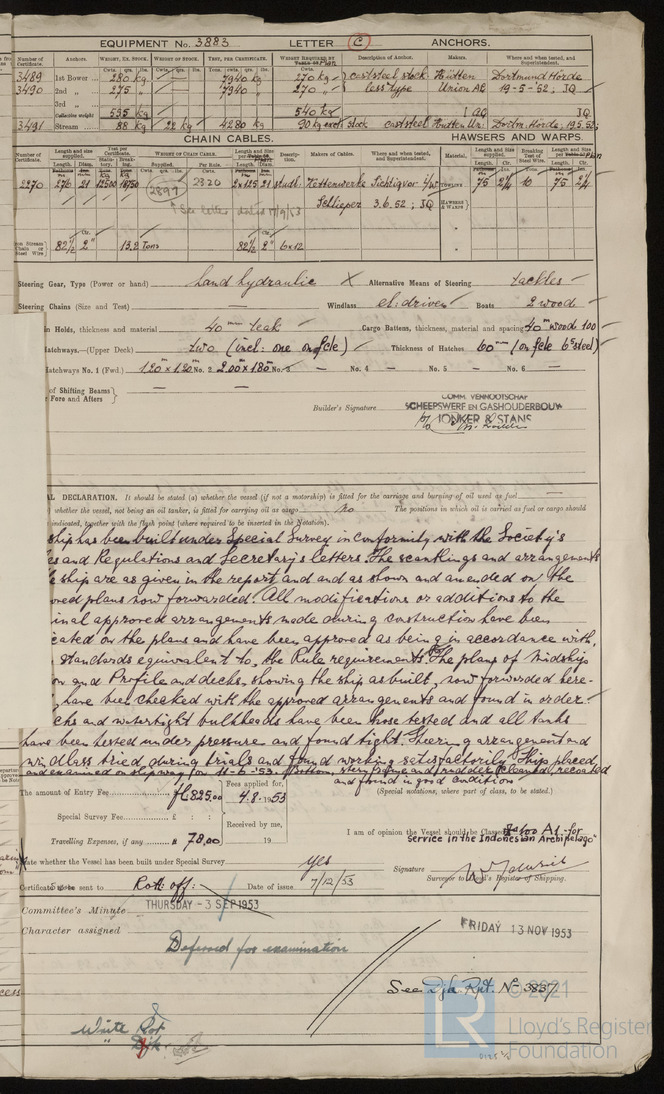 EQUIPMENT No. 3883 LETTER C ANCHORS.
Number of Certificate. Anchors. WEIGHT, EX. STOCK. WEIGHT OF STOCK. TEST, PER CERTIFICATE. WEIGHT REQUIRED BY Description of Anchor. Makers. Where and when tested, and Superintendent.
3489 1st Bower 280 kg 7940 kg 270 kg cast steel stock Hütten Dortmund Hörde
3490 2nd „ 275 „ 7940 270 „ less type Union AG 19-5-52; JQ
3rd „
Collective weight 555 kg 540 kg JQ
3491 Stream 88 kg 22 kg 4280 kg 90 kg excl. stock cast steel Hütten Un: Dortm. Hörde; 19.5.52;
CHAIN CABLES. HAWSERS AND WARPS.
2270 276 21 12500 18750 2897 2820 2x125 21 studl. Kettenwerke 75 2¼ 10 75 2¼
See letter dated 17/9/53 Schlieper 3.6.52; JQ
82½ 2" 13.2 Tons 82½ 2" 6x12
Steering Gear, Type (Power or hand) hand hydraulic Alternative Means of Steering tackles
Steering Chains (Size and Test) — Windlass el: driven Boats 2 wood
in Holds, thickness and material 40 mm teak Cargo Battens, thickness, material and spacing 40 mm wood 100
Hatchways.—(Upper Deck) two (incl: one on fcle) Thickness of Hatches 60 mm (on fcle 6 steel)
Hatchways No. 1 (Fwd.) 1.20 m x 1.20 m No. 2 2.00 x 1.80 m No. 3 — No. 4 — No. 5 — No. 6 —
of Shifting Beams — —
Fore and Afters
COMM. VENNOOTSCHAP
SCHEEPSWERF EN GASHOUDERBOUW
Builder's Signature p/o JONKER & STANS
DECLARATION. It should be stated (a) whether the vessel (if not a motorship) is fitted for the carriage and burning of oil used as fuel —
whether the vessel, not being an oil tanker, is fitted for carrying oil as cargo no The positions in which oil is carried as fuel or cargo should
indicated, together with the flash point (where required to be inserted in the Notation).
ship has been built under Special Survey in conformity with the Society's
and Regulations and Secretary's letters. The scantlings and arrangements
ship are as given in the report, and and as shown and amended on the
plans now forwarded. All modifications or additions to the
approved arrangements made during construction have been
on the plans and have been approved as being in accordance with,
standards equivalent to, the Rule requirements. The plans of Midship
and Profile and decks, showing the ship as built, now forwarded here-
have been checked with the approved arrangements and found in order.
and watertight bulkheads have been hose tested and all tanks
have been tested under pressure and found tight. Steering arrangement and
windlass tried, during trials and found working satisfactorily. Ship placed
and examined on slipway for 11-6-53. Bottom, stern frame and rudder cleaned, recoated
and found in good condition
The amount of Entry Fee f 825.00 Fees applied for, 4.8.1953 (Special notations, where part of class, to be stated.)
Special Survey Fee £ : : Received by me,
Travelling Expenses, if any 78.00 19
I am of opinion the Vessel should be Classed 100 A1 for
service in the Indonesian Archipelago"
State whether the Vessel has been built under Special Survey yes
Signature
Surveyor to Lloyd's Register of Shipping.
Certificate to be sent to Rott: off: Date of issue 7/12/53
Committee's Minute THURSDAY - 3 SEP 1953
Character assigned FRIDAY 13 NOV 1953
Deferred for examination
See Dja Rpt. No 3837.
© 2021
Lloyd's Register
Foundation
LR
Write Rot
" Djk.